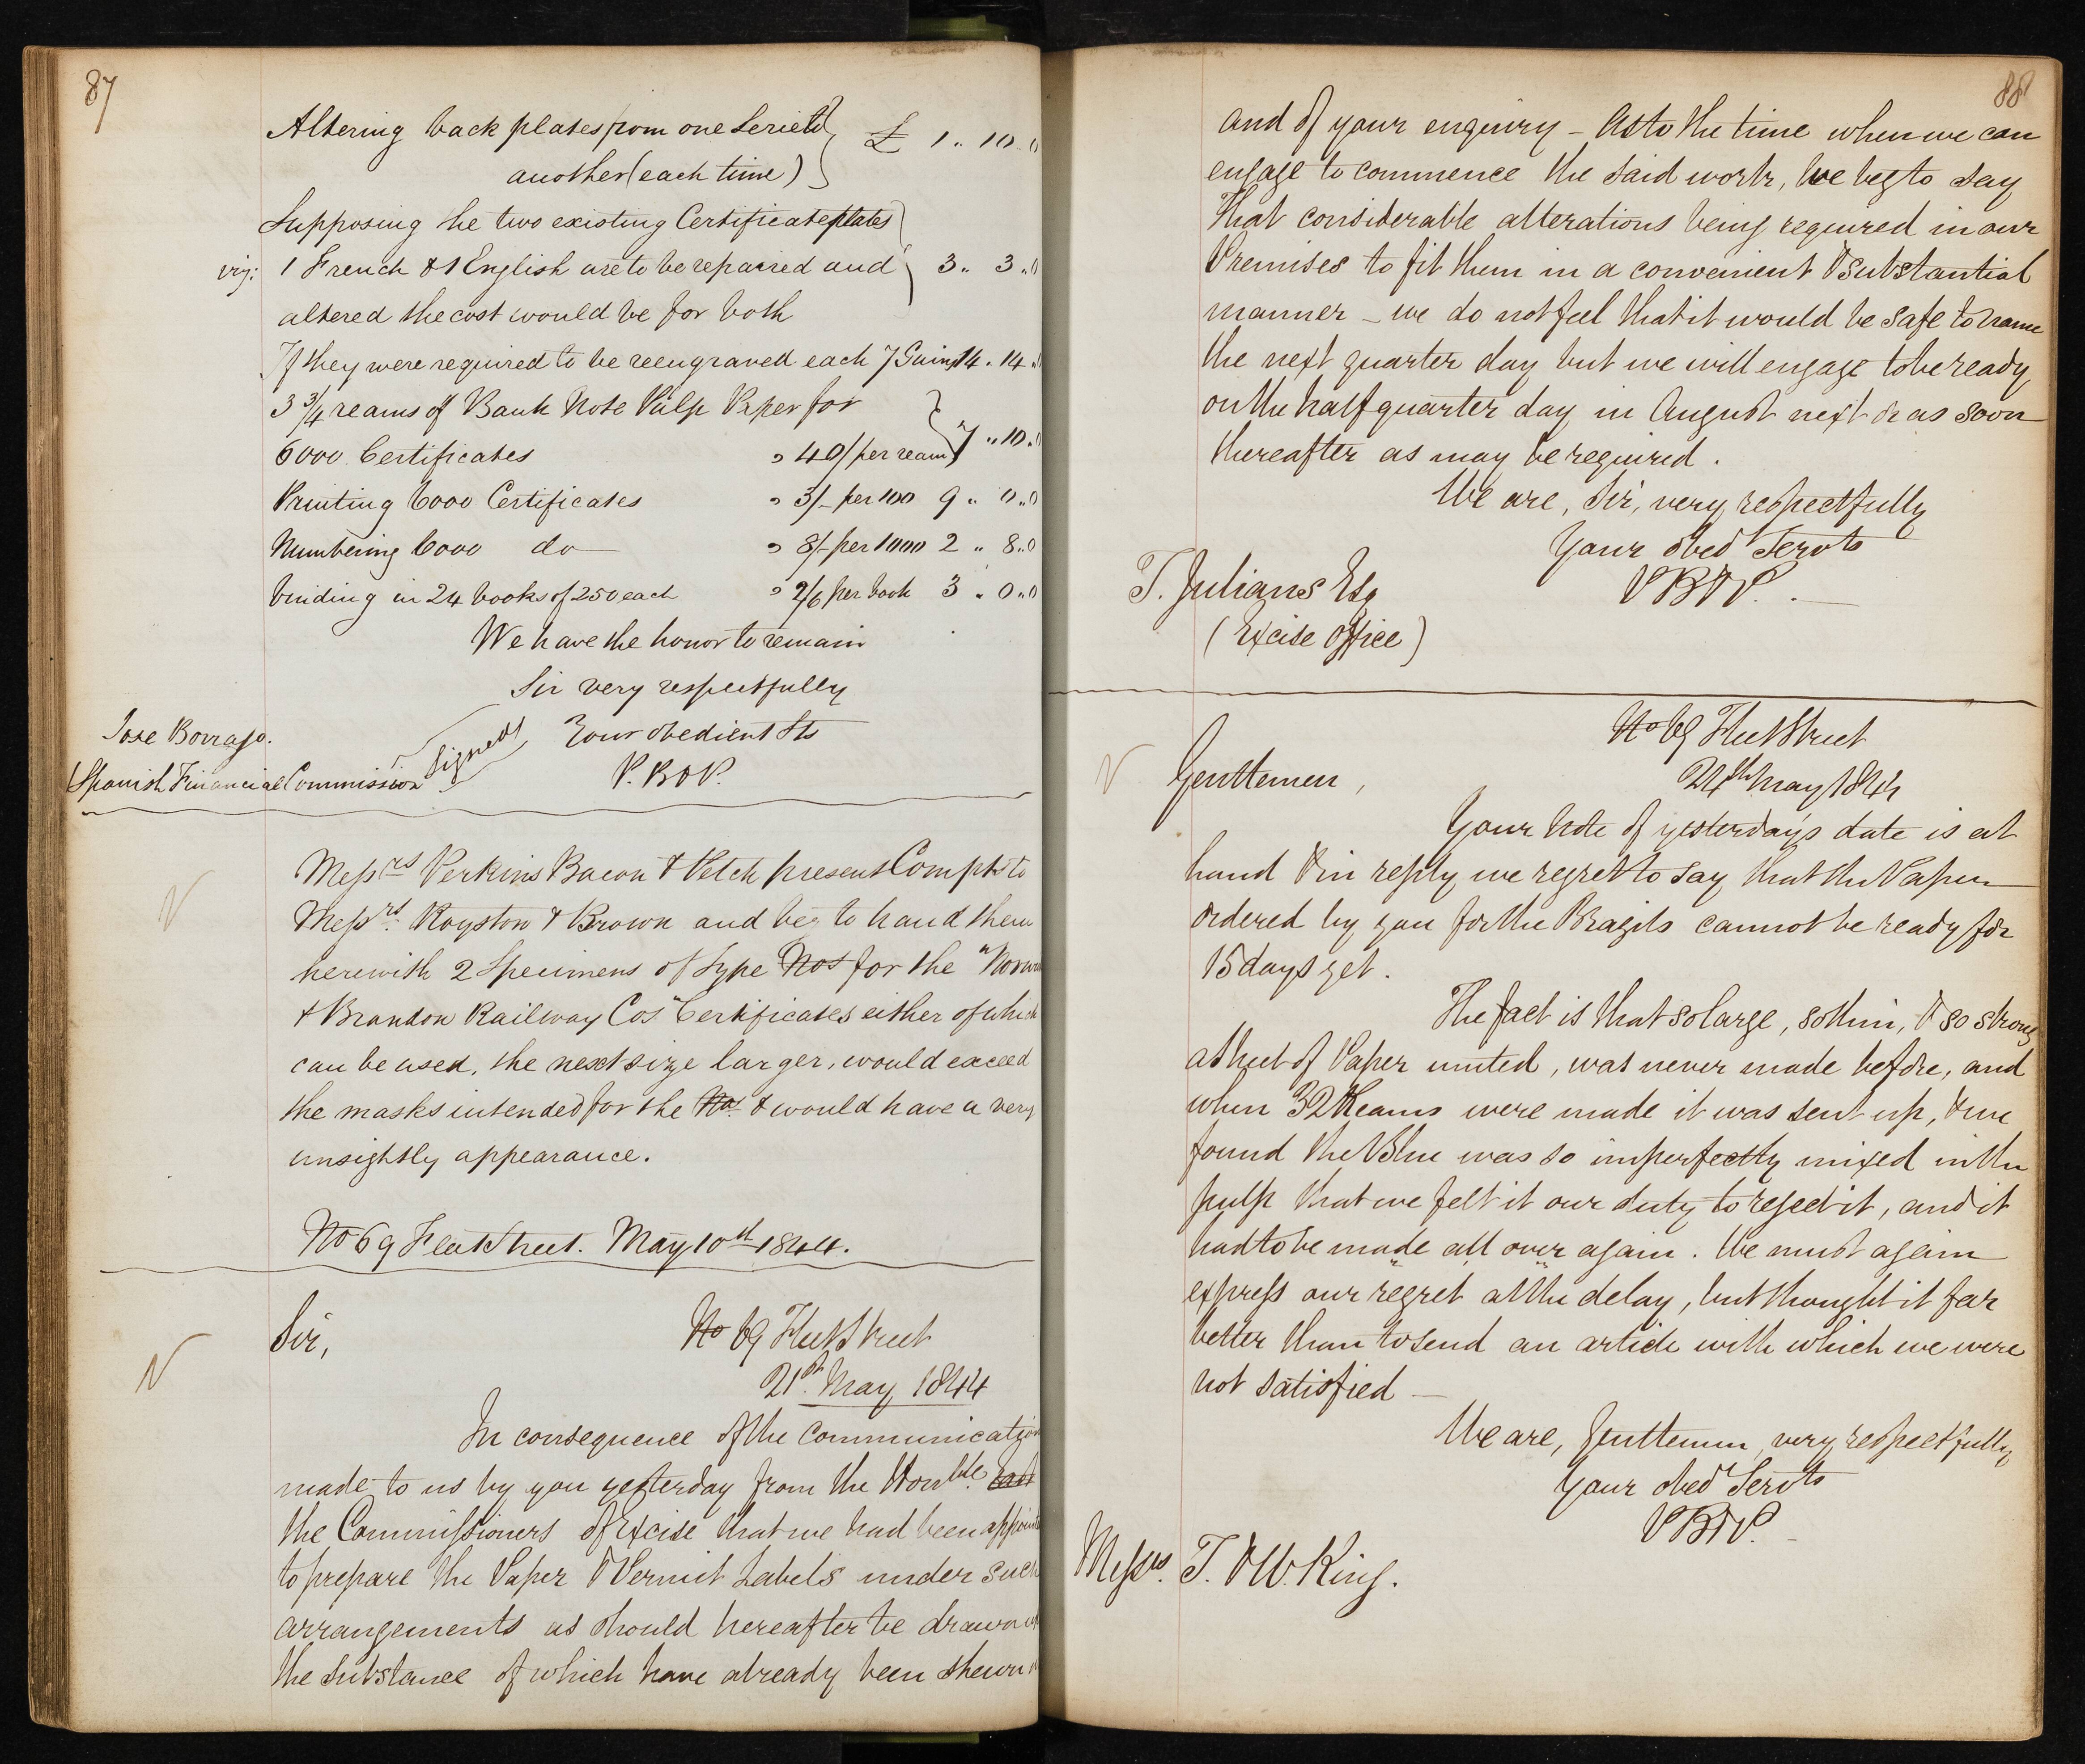 87
Altering back plates from one Serie to
another (each time) £ 1 .. 10 .. 0
Supposing the two existing Certificate plates
viz: 1 French & 1 English are to be repaired and 3 .. 3 .. 0
altered the cost would be for both
If they were required to be reengraved each 7 Guins 14 .. 14 ..
3 3/4 reams of Bank Note Pulp Paper for
6000 Certificates " 40/ per ream 7 .. 10 .. 0
Printing 6000 Certificates " 3/- per 100 9 .. 0 .. 0
Numbering 6000 do " 8/- per 1000 2 .. 8 .. 0
binding in 24 books of 250 each " 2/6 per book 3 .. 0 .. 0
We have the honor to remain
Sir very respectfully
Jose Borrajo. Signed Your obedient Sts
(Spanish Financial Commission P. B & P.
Messrs Perkins Bacon & Petch present Compts to
Messrs. Royston & Brown and beg to hand them
herewith 2 Specimens of Type Nos for the "Norw
& Brandon Railway Cos" Certificates either of which
can be used, the next size larger, would exceed
the masks intended for the Nos. & would have a very
unsightly appearance.
No 69 Fleet Street. May 10th 1844.
Sir, No 69 Fleet Street
21st. May 1844
In consequence of the communication
made to us by you yesterday from the Honble.
the Commissioners of Excise that we had been appoint
to prepare the Paper & Permit Labels under such
arrangements as should hereafter be drawn
the substance of which have already been shewn
88
and of your enquiry – As to the time when we can
engage to commence the said work, We beg to say
that considerable alterations being required in our
Premises to fit them in a convenient & substantial
manner – we do not feel that it would be safe to name
the next quarter day but we will engage to be ready
on the half quarter day in August next or as soon
thereafter as may be required.
We are, Sir, very respectfully
Your obed Servts
T. Julians Esq P B & P.
(Excise Office)
No 69 Fleet Street
Gentlemen, 24th May 1844
Your Note of yesterday's date is at
hand & in reply we regret to say that the Paper
ordered by you for the Brazils cannot be ready for
15 days yet.
The fact is that so large, so thin, & so strong
a sheet of Paper united, was never made before, and
when 32 Reams were made it was sent up, & we
found the Blue was so imperfectly mixed in the
pulp that we felt it our duty to reject it, and it
had to be made all over again. We must again
express our regret at the delay, but thought it far
better than to send an article with which we were
not satisfied –
We are, Gentlemen, very respectfully,
Your obed Servts
P B & P.
Messrs. T. & W. King.